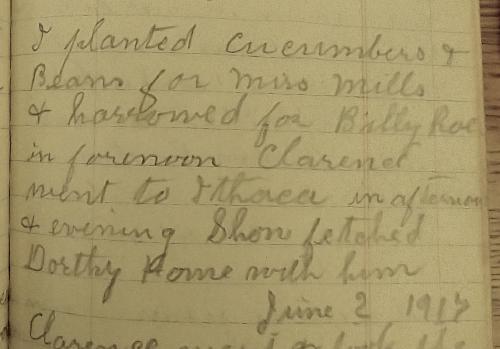 I planted cucumbers &
Beans for Miss Mills
& harrowed for Billy Roe
in forenoon Clarence
went to Ithaca in afternoon
& evening Shon fetched
Dorthy Home with him
June 2 1917
Clarence